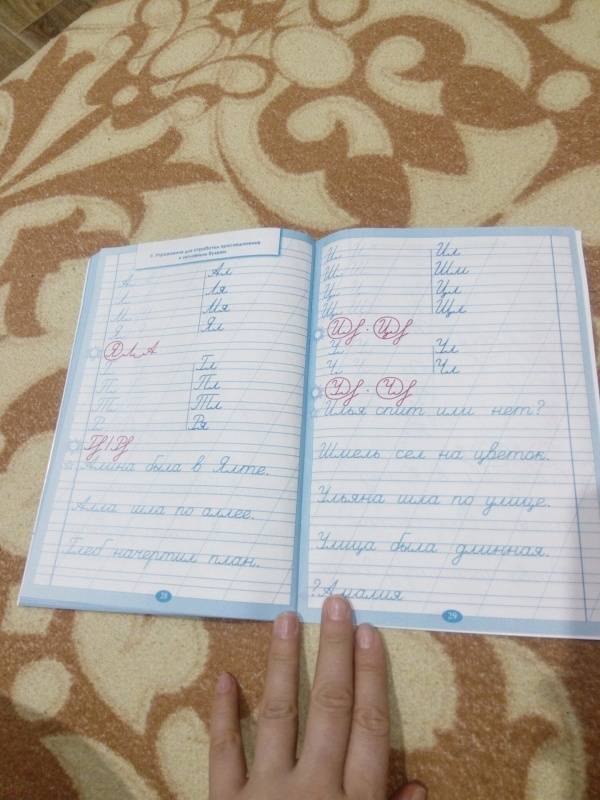 5. Упражнения для отработки присоединения к заглавным буквам
А Ал
Л Ля
М Мя
Я Ял
Я Л А
Г Гл
П Пл
Т Тл
Р Ря
Алина была в Ялте.
Алла шла по аллее.
Глеб начертил план.
28
И Ил
Ш Шм
Ц Цл
Щ Щл
У Ул
Ч Чл
Илья спит или нет?
Шмель сел на цветок.
Ульяна шла по улице.
Улица была длинная.
?Амалия
29